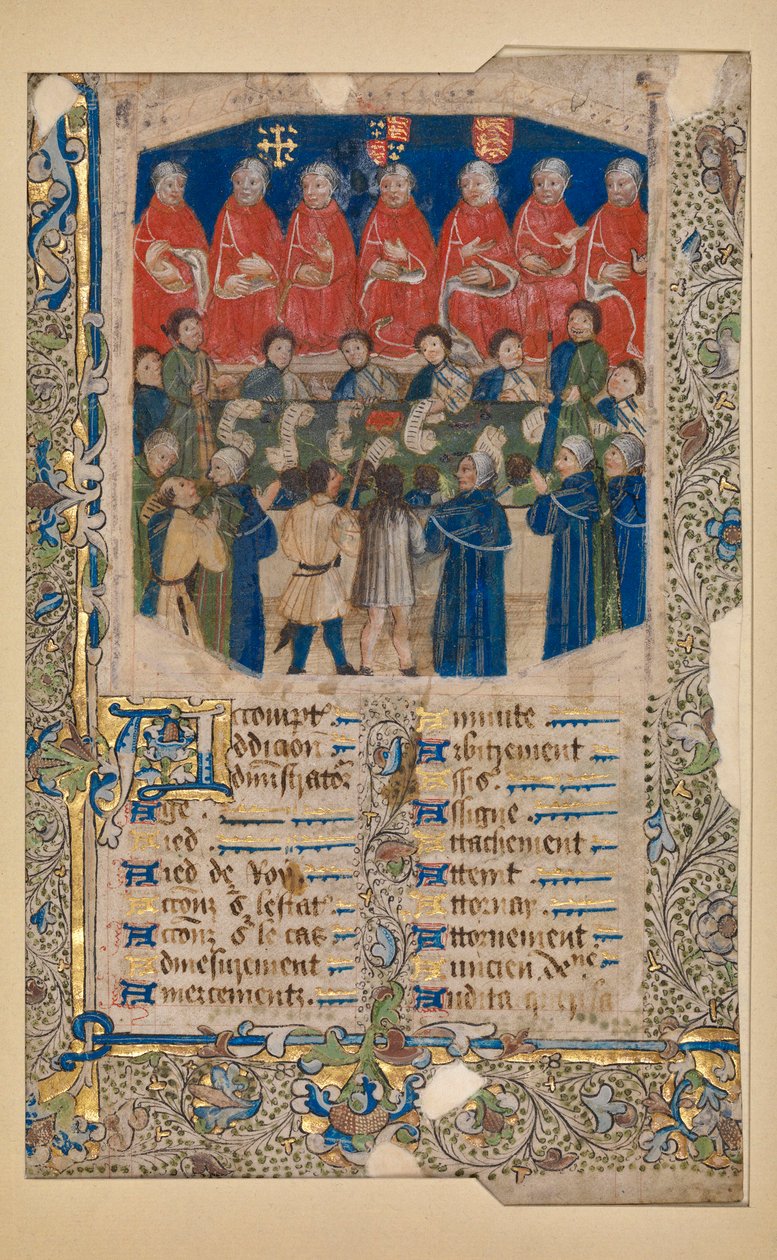 Accompt.
Addicion
Administrator
Age.
Aied
Aied de Roy
Accionz s lestat.
Accionz s le cas
Admesurement
Amercementz.
Annuite
Arbitrement
Assis.
Assigne.
Attachement
Attemt.
Attornay.
Attornement.
Auncien dene
Audita querela